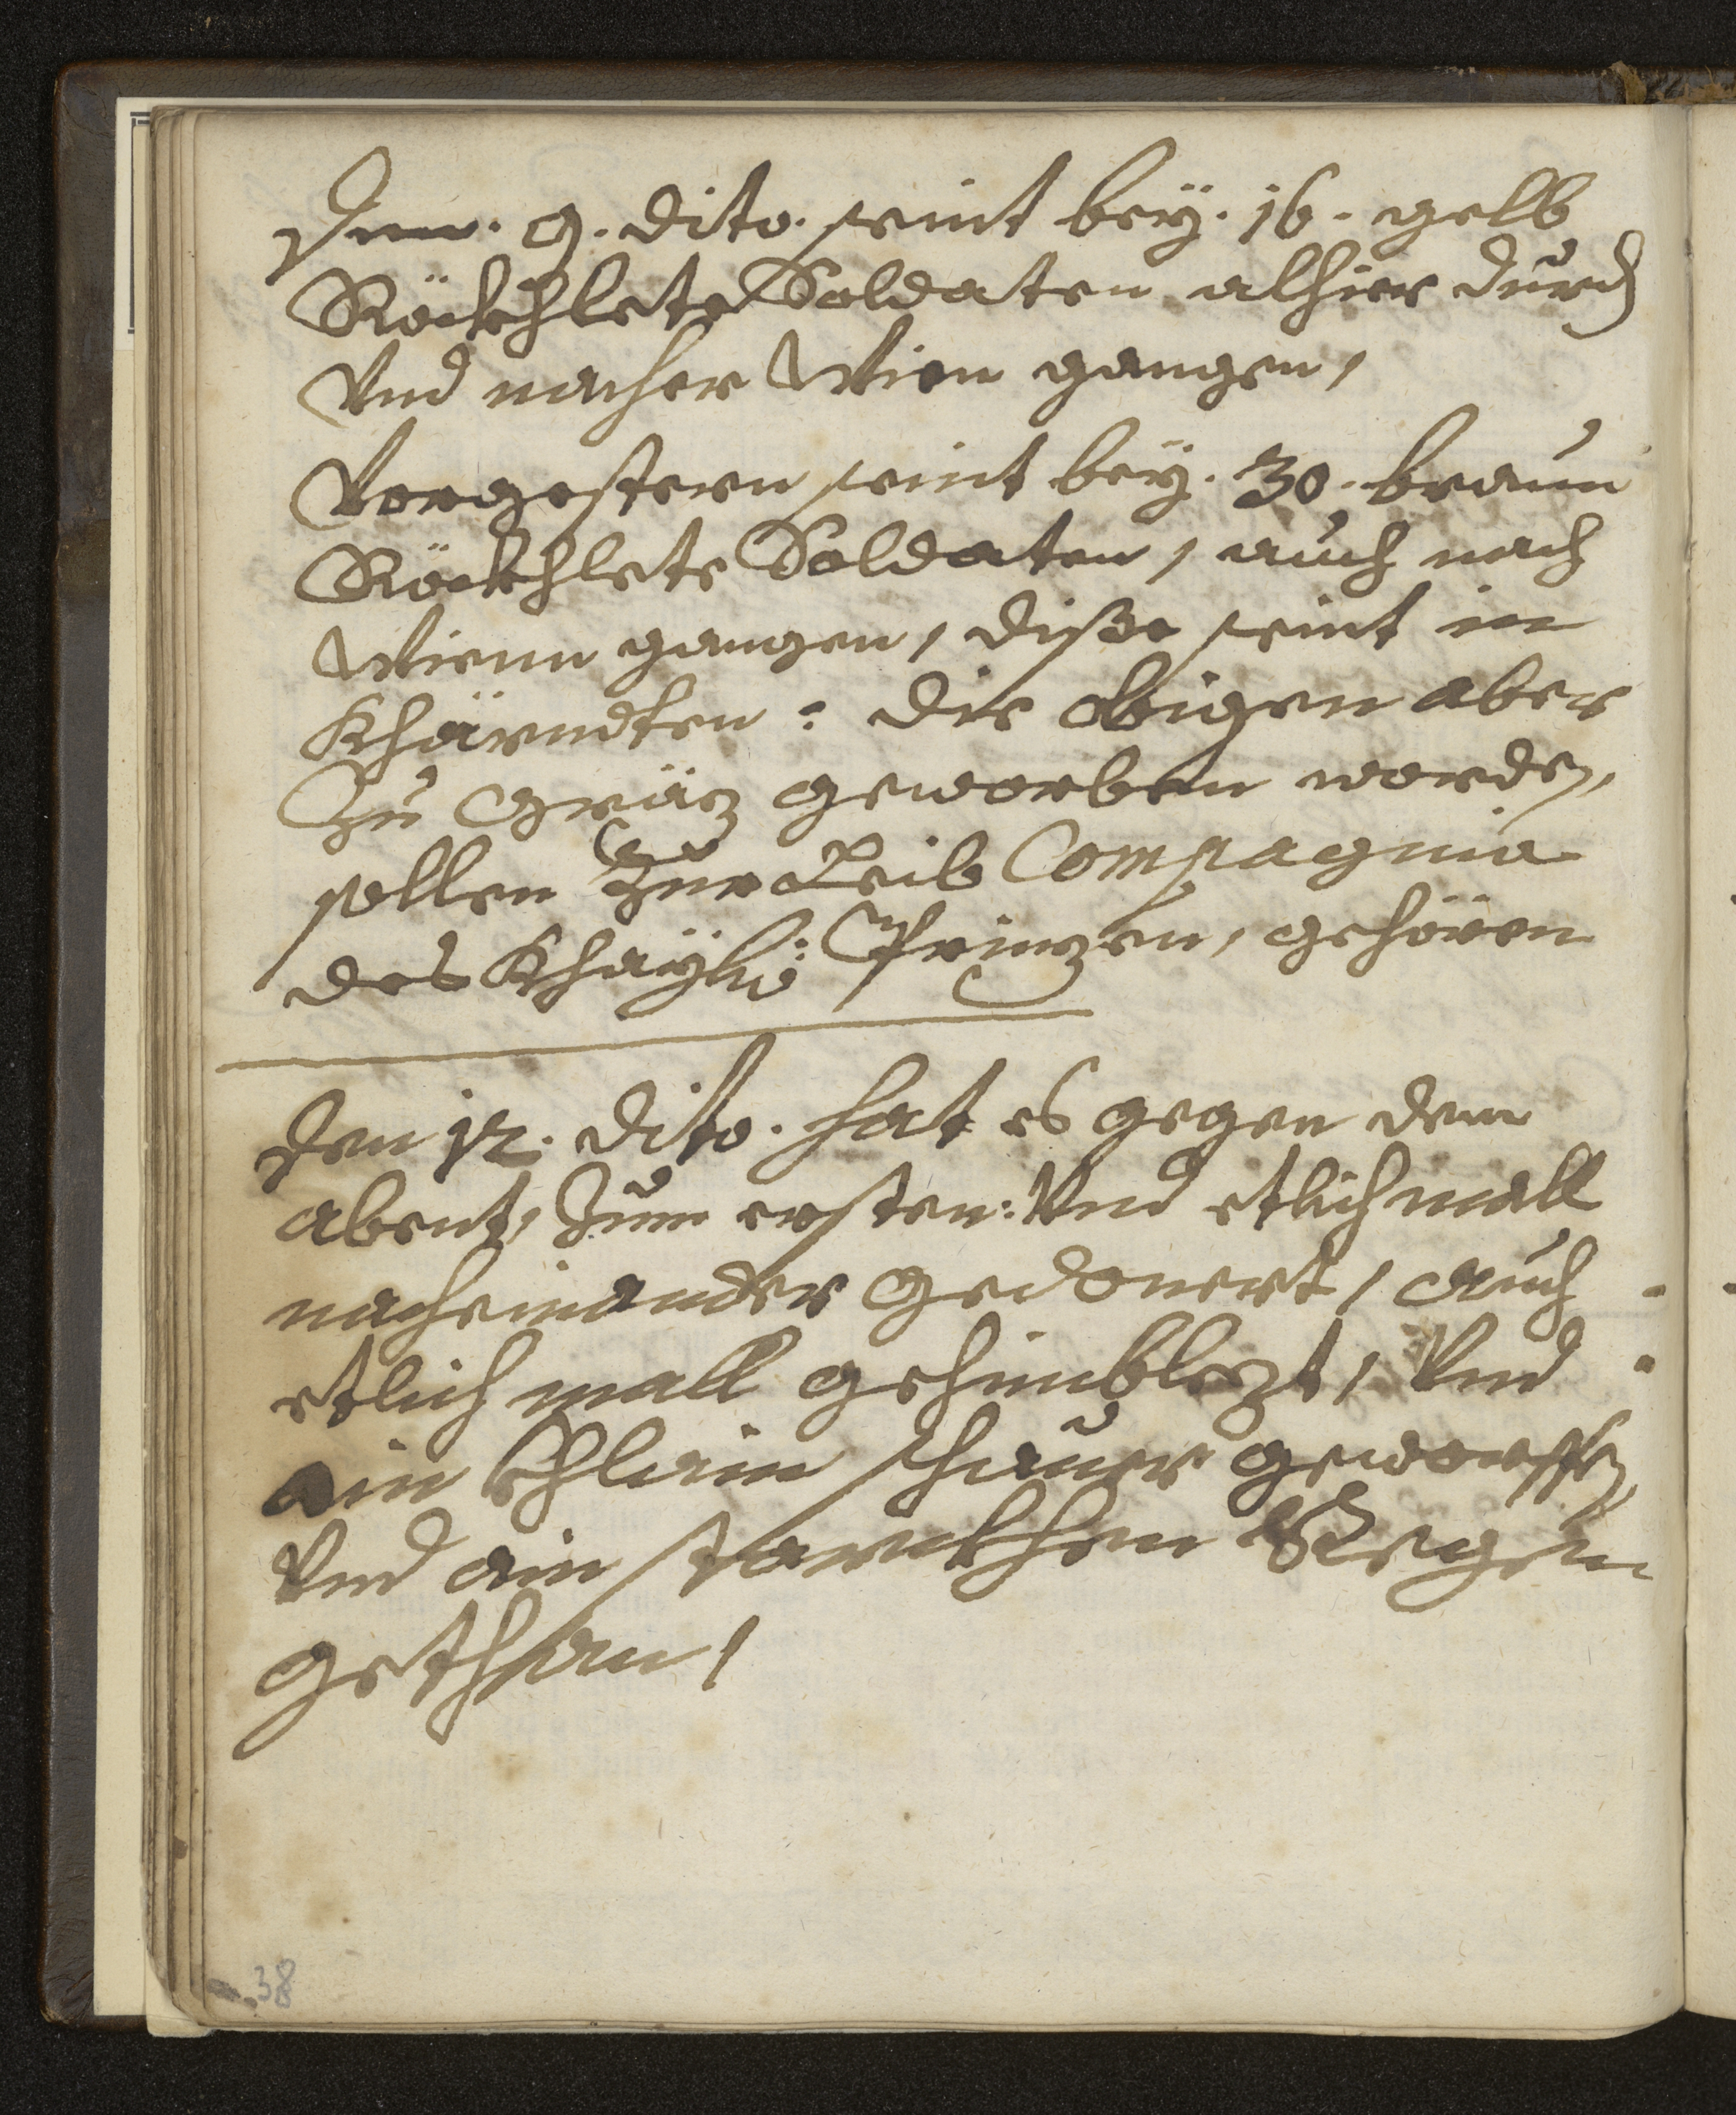 Den. 9. dito. seint beÿ. 16. gelb
Röckhlete Soldaten alhier durch
Vnd nacher Wien gangen,
Vorgestern seint beÿ. 30. braun
Röckhlete Soldaten, auch nach
Wienn gangen, dise seint in
Khärndten: die obigen aber
Zu Gräz geworben worden,
sollen Zur Leib Compagnia
des Khaÿl: Prinzen, gehören
Den 12. dito. hat es gegen dem
abent, Zum ersten: Vnd etlich mall
nacheinander gedonert, auch
etlich mall gehimblezt, Vnd
ain Khlain schauer geworffen,
Vnd ain starckhen Regen
gethan,
38